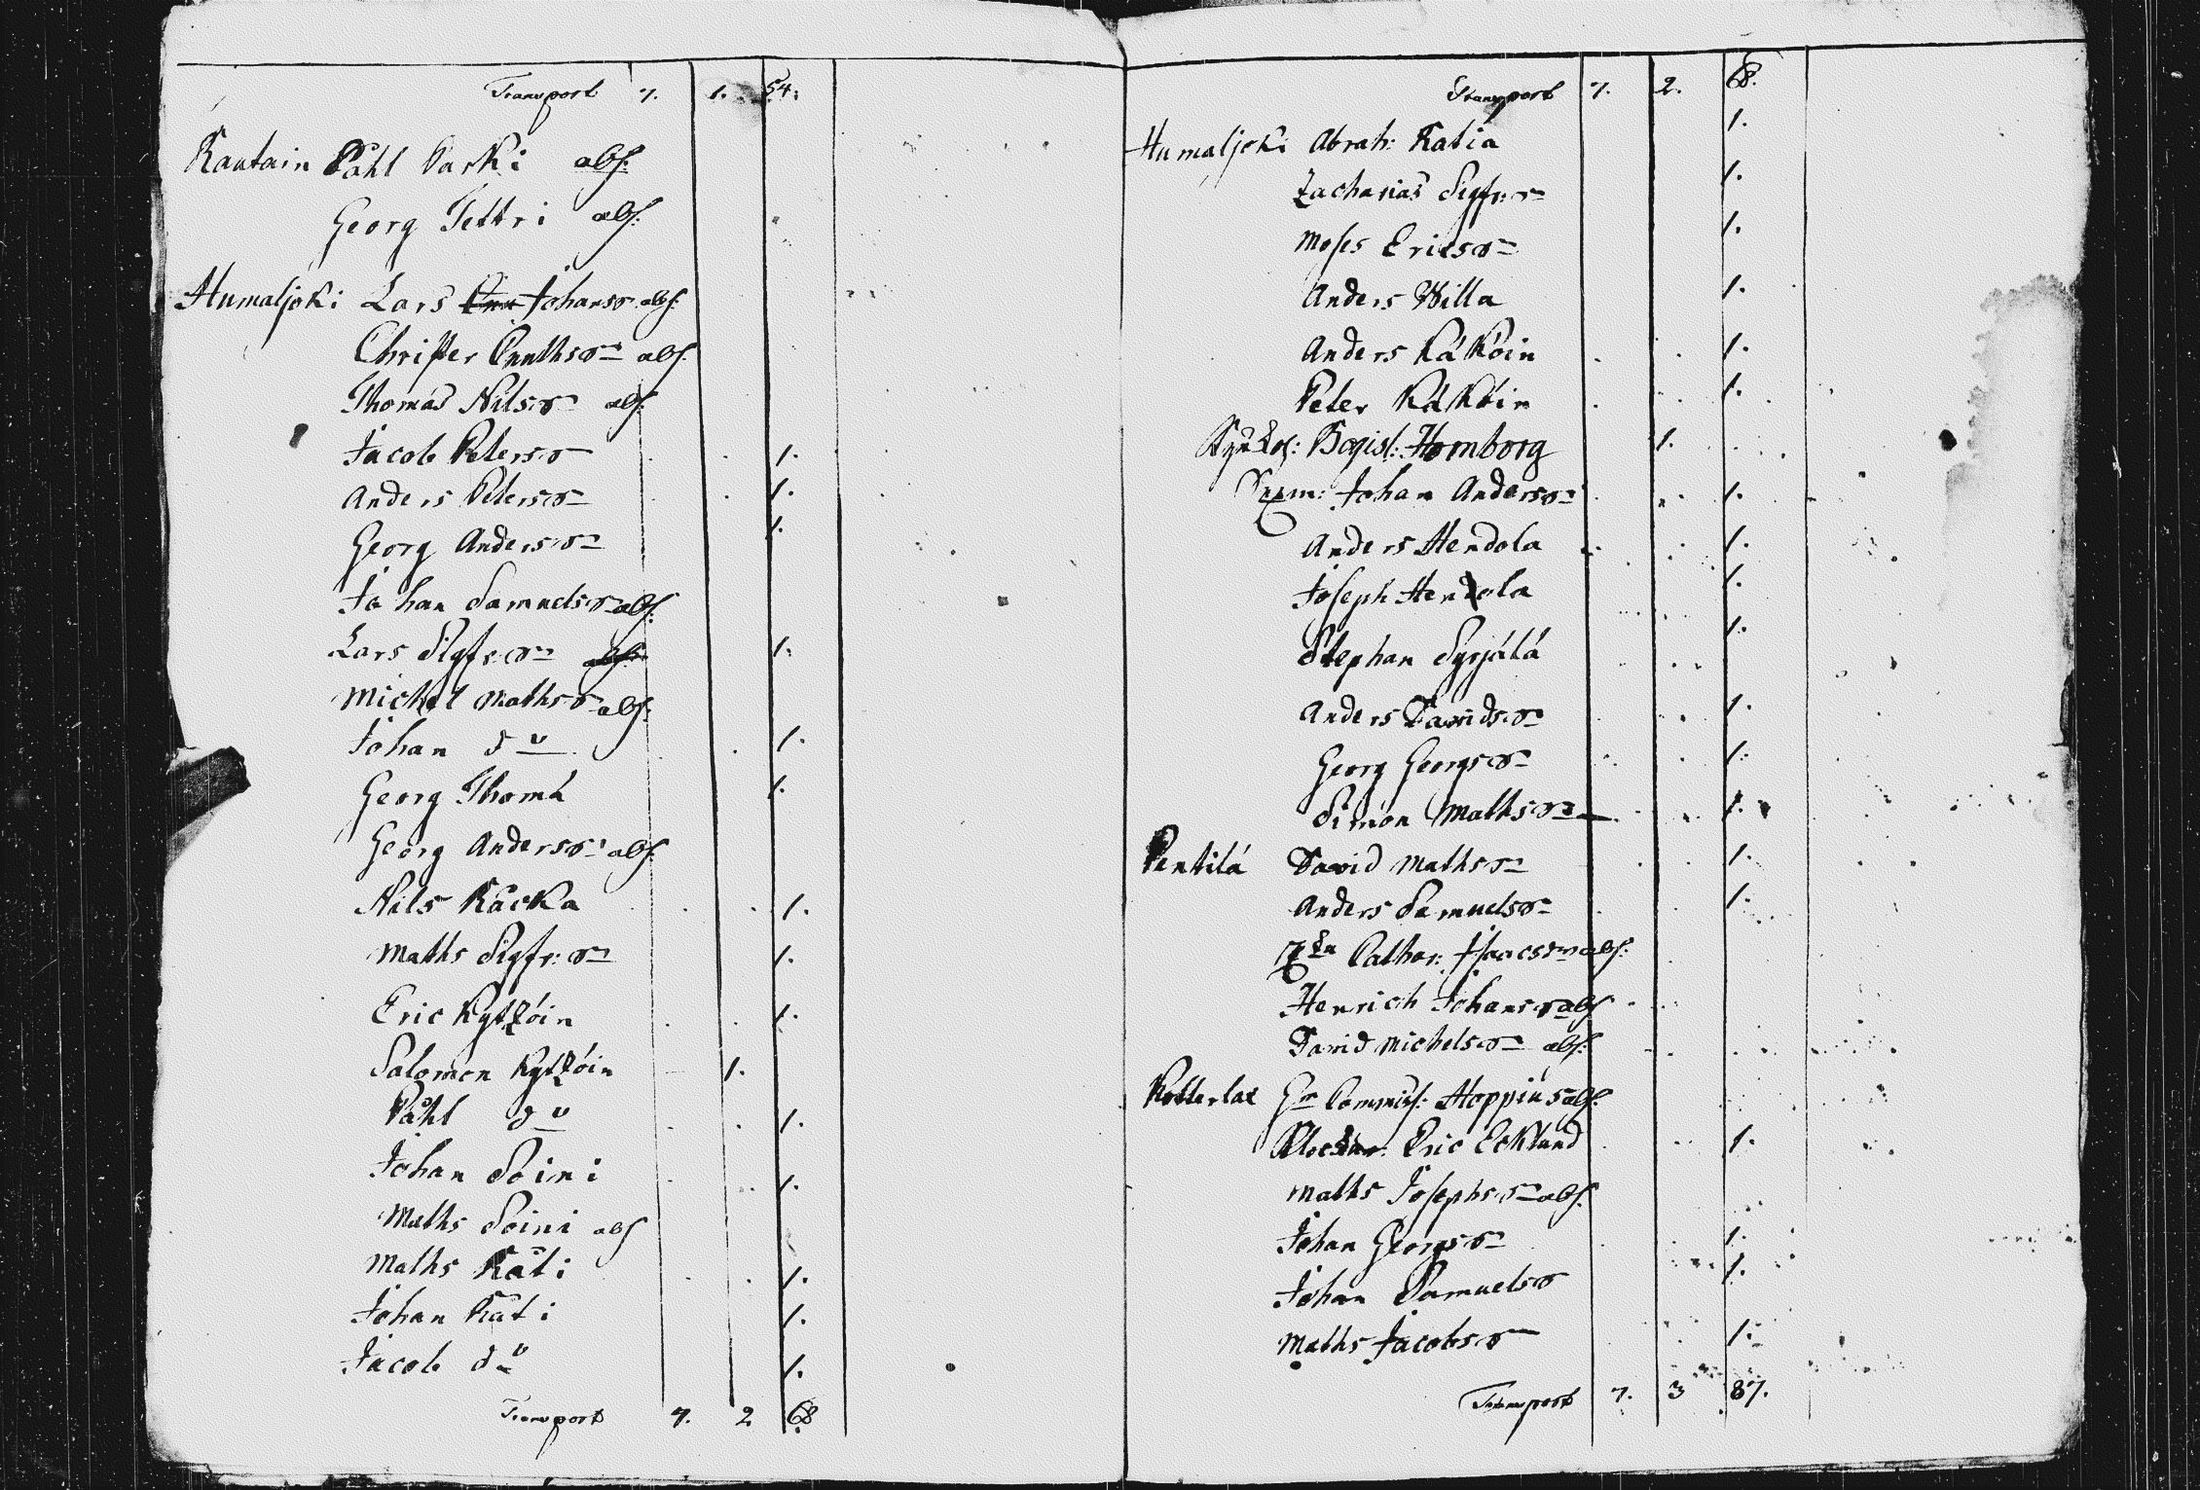 Transport 7. 1. 54.
Rautain Påhl Parki abs:
Georg Tettri abs:
Humaljoki Lars Johans: abs:
Christer Annthson abs:
Thomas Nilsso abs:
Jacob Peterso 1.
Anders Peterson 1.
Georg Anderson 1.
Johan Samuelso abs:
Lars Sigfr:son abs: 1.
Michel Mathso abs:
Johan do 1.
Georg Thomä 1.
Georg Anderso abs:
Nils Käcka 1.
Maths Sigfr:son 1.
Eric Kytzöin 1.
Salomon Kytzöin 1.
Påhl do 1.
Johan Soini 1.
Maths Soini abs
Maths Räti 1.
Johan Räti 1.
Jacob do 1.
Transport 7. 2 68
Transport 7. 2. 68.
Humaljoki Abrah: Katia 1.
Zacharias Sigfr:son 1.
Moses Ericson 1.
Anders Willa 1.
Anders Käköin 1.
Peter Käköin 1.
Regist: Hornborg 1.
Johan Anderson 1.
Anders Hendola 1.
Joseph Hendola 1.
Stephan Syrjälä 1.
Anders Davidson 1.
Georg Georgson 1.
Simon Mathson 1.
Pentilä David Mathson 1.
Anders Samuelson 1.
Cathar: Isaacsdr abs:
Henrich Johanso abs
David Michelson abs:
Kotterlax Commiss: Hoppius abs:
Eric Ecklund 1.
Maths Josephson abs:
Johan Georgson 1.
Johan Samuelso 1.
Maths Jacobso 1.
Transport 7. 3 87.